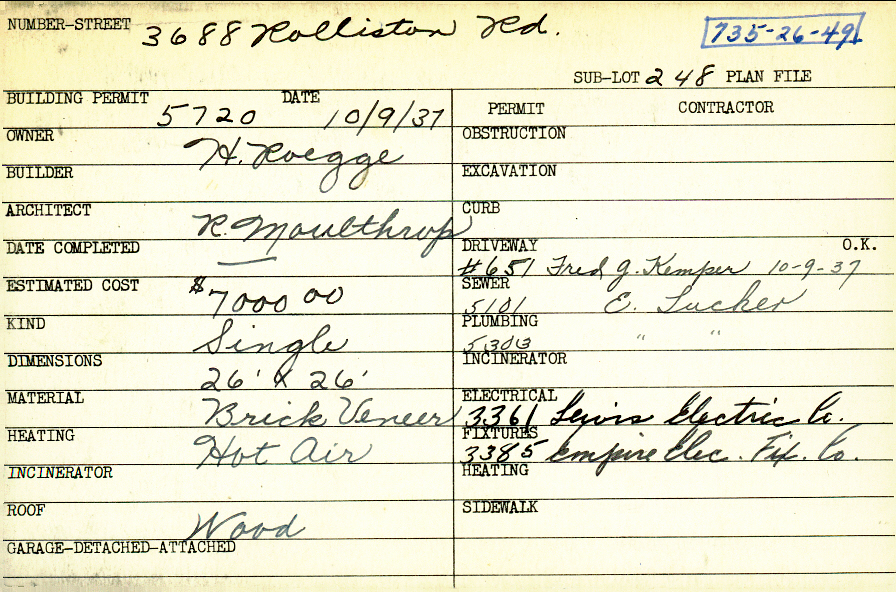 NUMBER-STREET 3688 Rolliston Rd. 735-26-49
SUB-LOT 248 PLAN FILE
BUILDING PERMIT 5720 DATE 10/9/37
PERMIT CONTRACTOR
OWNER H. Roegge
OBSTRUCTION
BUILDER
EXCAVATION
ARCHITECT R. Moulthrop
CURB
DATE COMPLETED —
DRIVEWAY O.K.
#651 Fred J. Kemper 10-9-37
ESTIMATED COST $7000 00
SEWER
5101 E. Tucker
KIND Single
PLUMBING
5303 " "
DIMENSIONS 26' X 26'
INCINERATOR
MATERIAL Brick Veneer
ELECTRICAL
3361 Lewis Electric Co.
HEATING Hot Air
FIXTURES
3385 Empire Elec. Fix. Co.
INCINERATOR
HEATING
ROOF Wood
SIDEWALK
GARAGE-DETACHED-ATTACHED